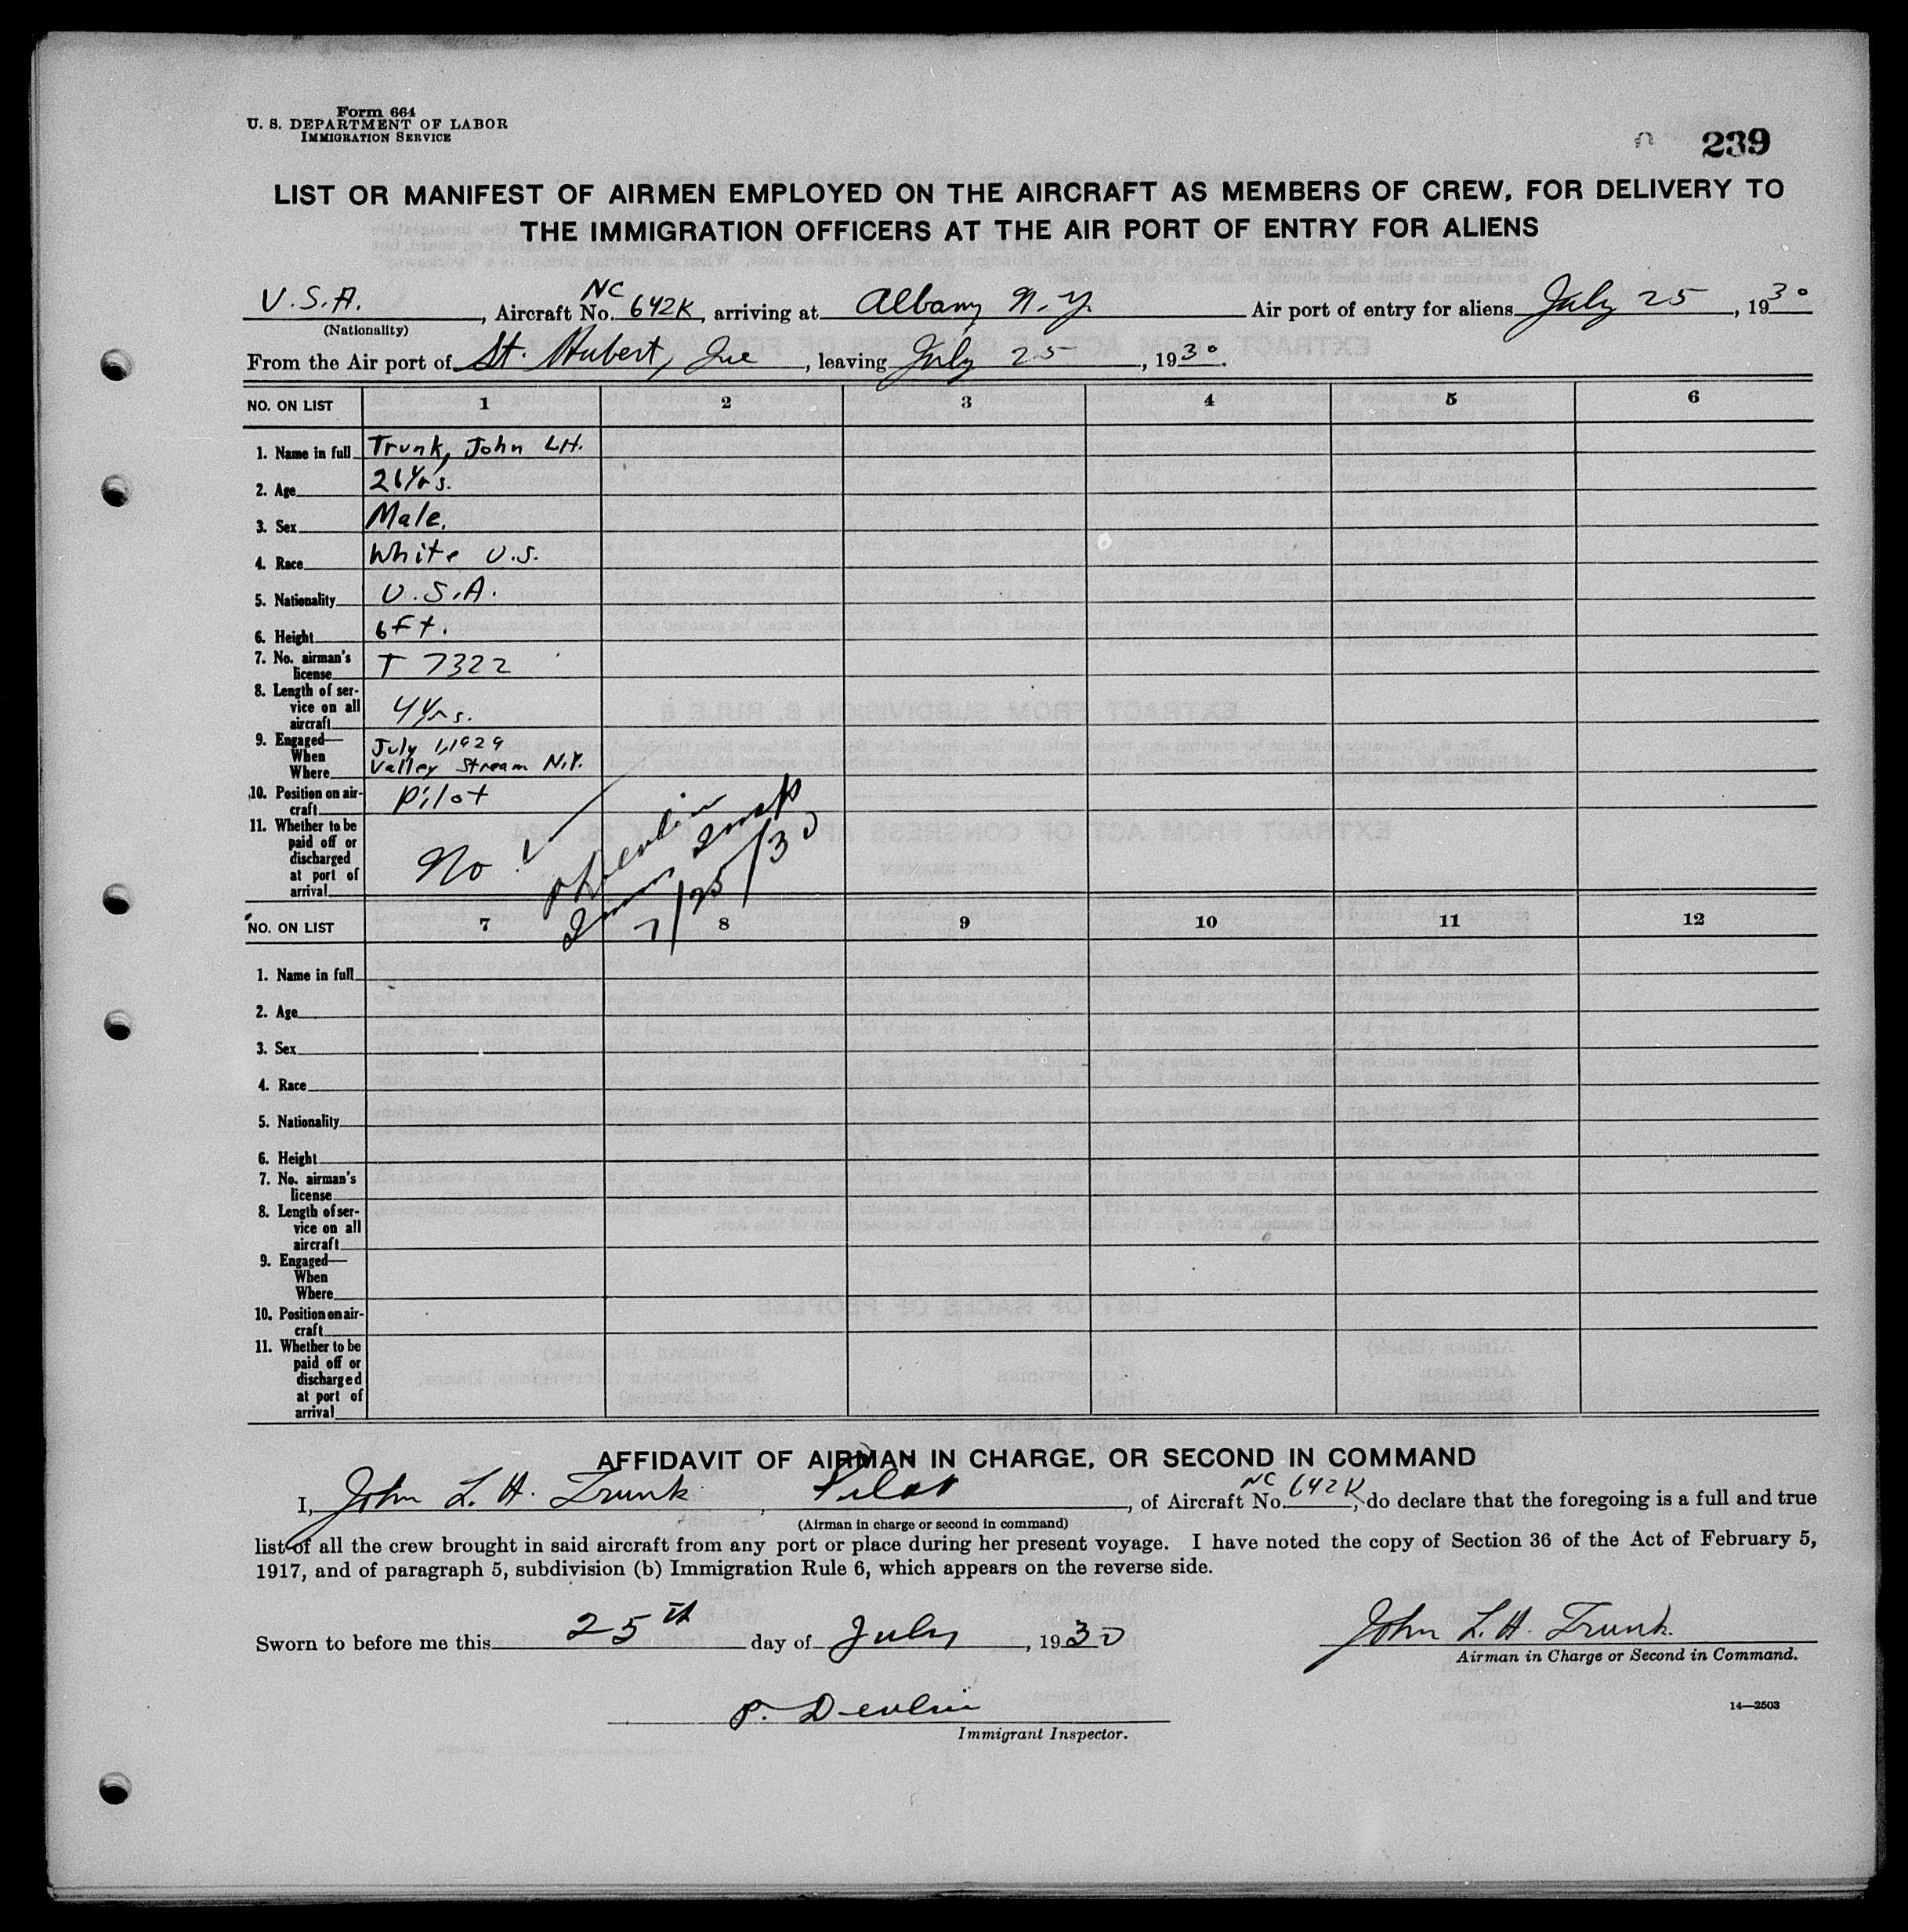 Form 664
U. S. DEPARTMENT OF LABOR
IMMIGRATION SERVICE
239
LIST OR MANIFEST OF AIRMEN EMPLOYED ON THE AIRCRAFT AS MEMBERS OF CREW, FOR DELIVERY TO
THE IMMIGRATION OFFICERS AT THE AIR PORT OF ENTRY FOR ALIENS
U.S.A., Aircraft No. NC 642K, arriving at Albany N.Y. Air port of entry for aliens July 25, 1930
(Nationality)
From the Air port of St. Hubert, Que, leaving July 25, 1930.
NO. ON LIST 1 2 3 4 5 6
1. Name in full Trunk, John L.H.
2. Age 26 Yrs.
3. Sex Male.
4. Race White U.S.
5. Nationality U.S.A.
6. Height 6 ft.
7. No. airman's
license T 7322
8. Length of ser-
vice on all
aircraft 4 Yrs.
9. Engaged—
When July 1, 1929
Where Valley Stream N.Y.
10. Position on air-
craft Pilot
11. Whether to be
paid off or
discharged
at port of
arrival No
P Devlin
Immig Insp
7/25/30
NO. ON LIST 7 8 9 10 11 12
1. Name in full
2. Age
3. Sex
4. Race
5. Nationality
6. Height
7. No. airman's
license
8. Length of ser-
vice on all
aircraft
9. Engaged—
When
Where
10. Position on air-
craft
11. Whether to be
paid off or
discharged
at port of
arrival
AFFIDAVIT OF AIRMAN IN CHARGE, OR SECOND IN COMMAND
I, John L. H. Trunk, Pilot, of Aircraft No. NC 642K, do declare that the foregoing is a full and true
(Airman in charge or second in command)
list of all the crew brought in said aircraft from any port or place during her present voyage. I have noted the copy of Section 36 of the Act of February 5,
1917, and of paragraph 5, subdivision (b) Immigration Rule 6, which appears on the reverse side.
Sworn to before me this 25th day of July, 1930
John L. H. Trunk.
Airman in Charge or Second in Command.
P. Devlin
Immigrant Inspector.
14—2503